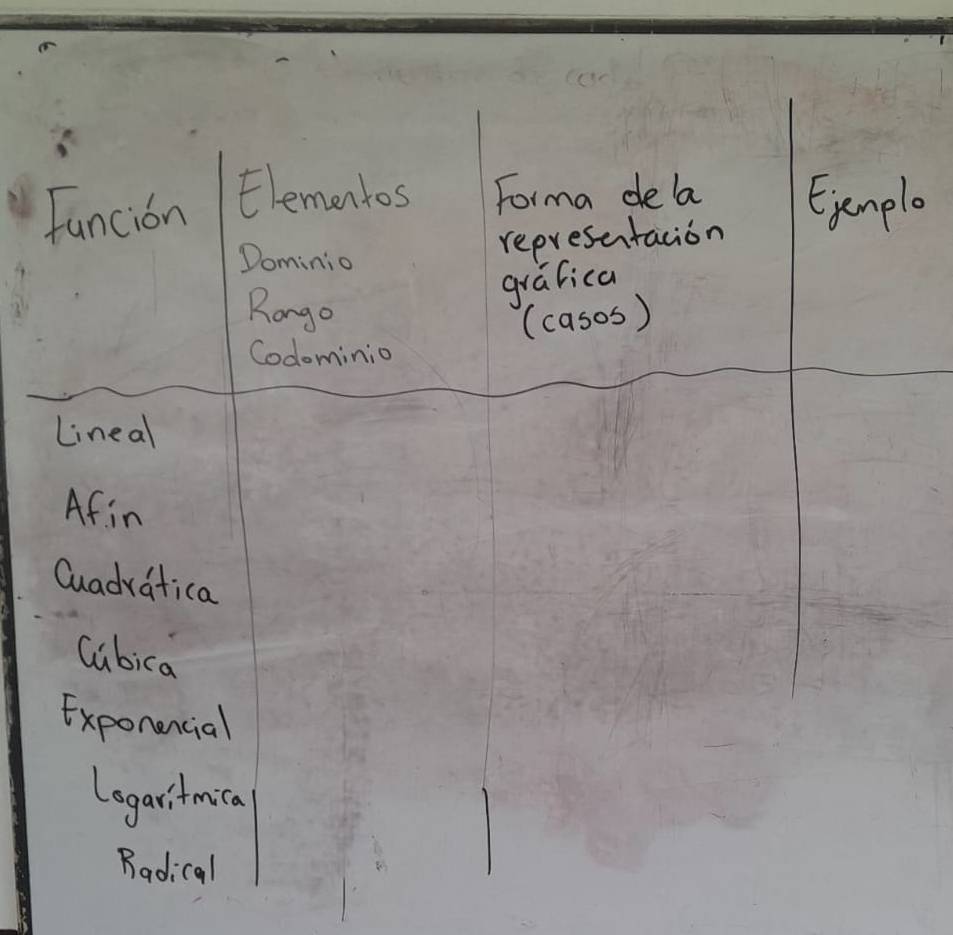 Función
Elementos
Dominio
Rango
Codominio
Forma de la
representación
gráfica
(casos)
Ejemplo
Lineal
Afín
Cuadrática
Cúbica
Exponencial
Logarítmica
Radical